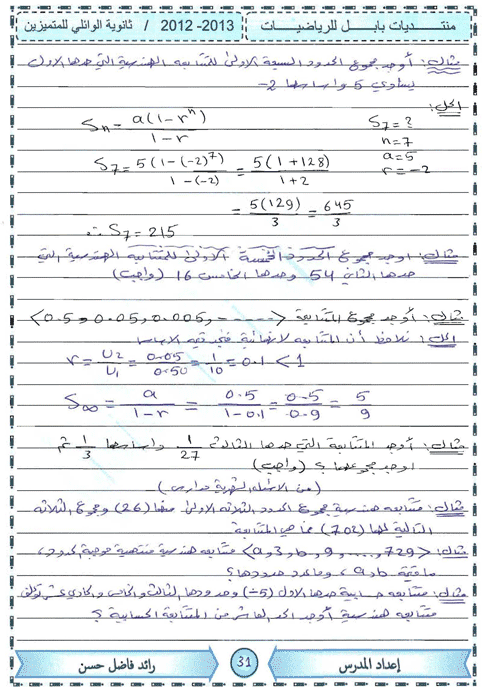 منتديات بابل للرياضيات 2013-2012 / ثانوية الوائلي للمتميزين
مثال: أوجد مجموع الحدود السبعة الاولى للمتتابعه الهندسية التي حدها الاول
يساوي 5 واساسها -2
الحل:
Sₙ = a(1-rⁿ) / 1-r
S₇ = ?
n = 7
a = 5
r = -2
S₇ = 5(1-(-2)⁷) / 1-(-2) = 5(1+128) / 1+2
= 5(129) / 3 = 645 / 3
∴ S₇ = 215
مثال: اوجد مجموع الحدود الخمسة الاولى للمتتابعه الهندسية التي
حدها الثاني 54 وحدها الخامس 16 (واجب)
مثال: أوجد مجموع المتتابعة <0.5, 0.05, 0.005, ----->
الحل: نلاحظ أن المتتابعه لانهائية فنجد قيمه الاساس
r = U₂ / U₁ = 0.05 / 0.50 = 1 / 10 = 0.1 < 1
S∞ = a / 1-r = 0.5 / 1-0.1 = 0.5 / 0.9 = 5 / 9
مثال: أوجد المتتابعة التي حدها الثالث 1/27 واساسها 1/3 ثم
اوجد مجموعها؟ (واجب)
(من الاسئله الشهرية مدارس)
مثال: متتابعه هندسية مجموع الحدود الثلاثه الاولى منها (26) ومجموع الثلاثه
التالية لها (702) فما هي المتتابعة
مثال: <a, 3, b, 9, ...., 729> متتابعه هندسية منتهية موجبة الحدود،
ما قيمة a, b، وما عدد حدودها؟
مثال: متتابعه حسابية حدها الاول (-5) وحدودها الثالث والخامس والحادي عشر تؤلف
متتابعه هندسية أوجد الحد العاشر من المتتابعة الحسابية؟
إعداد المدرس 31 رائد فاضل حسن